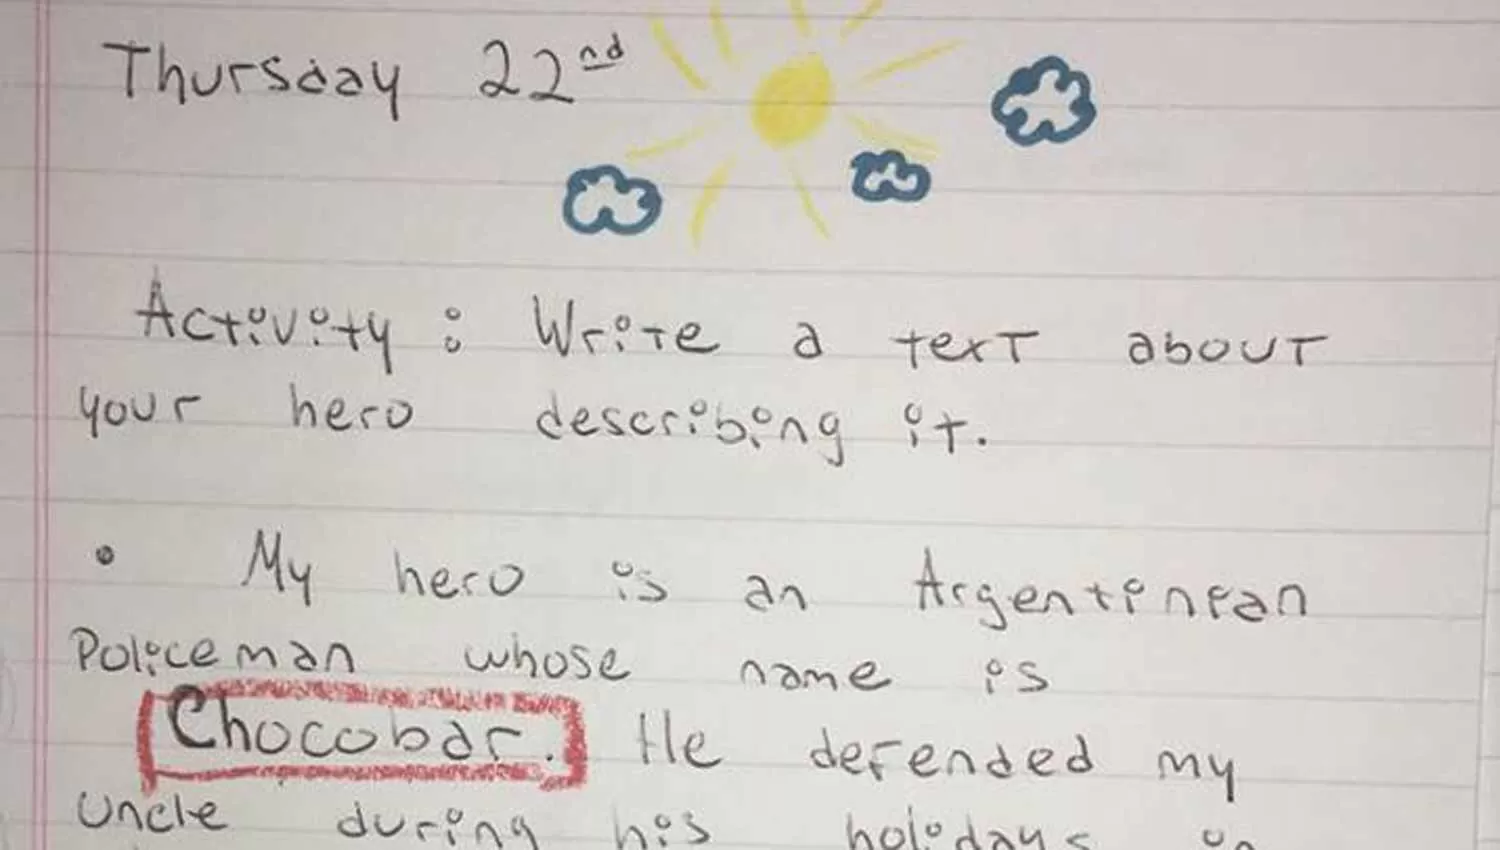 Thursday 22nd
Activity: Write a text about
your hero describing it.
• My hero is an Argentinean
Policeman whose name is
Chocobar. He defended my
uncle during his holidays in